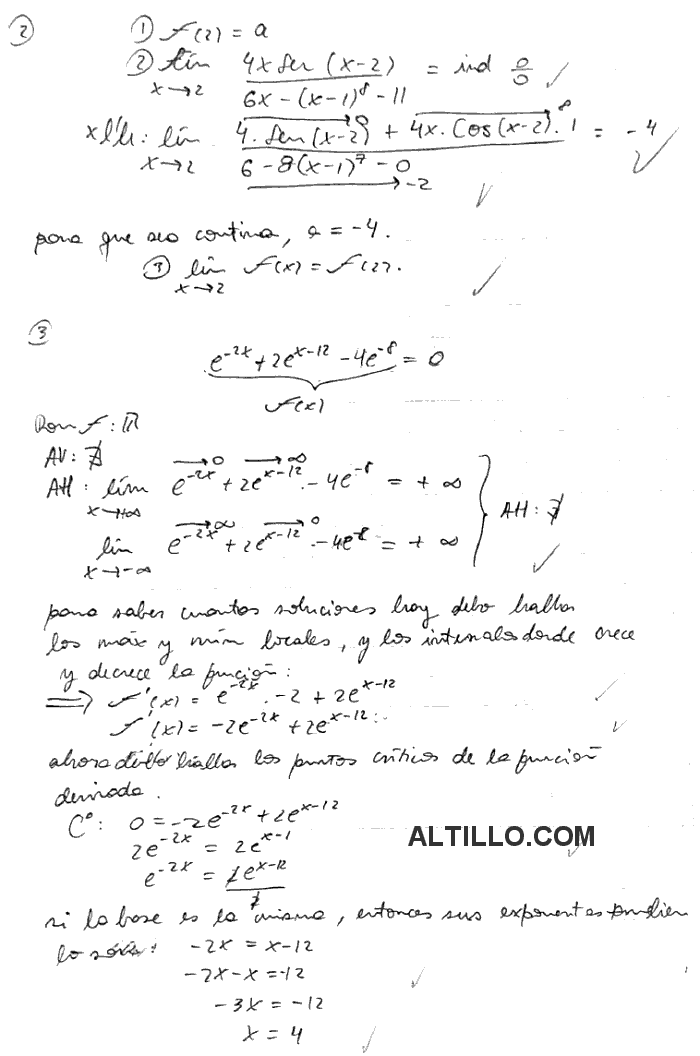 2
① f(2) = a
② lím x→2 4x sen (x-2) / 6x - (x-1)^8 - 11 = ind 0/0 ✓
x l'h: lím x→2 4. sen(x-2) + 4x. Cos(x-2). 1 / 6 - 8(x-1)^7 - 0 = -4 ✓
→0 →8
→-2 ✓
para que sea continua, a = -4.
③ lím x→2 f(x) = f(2). ✓
3
e^-2x + 2e^x-12 - 4e^-8 = 0
f(x)
Dom f: ℝ
AV: ∄
AH: lím x→+∞ e^-2x + 2e^x-12 - 4e^-8 = +∞
→0 →∞
lím x→-∞ e^-2x + 2e^x-12 - 4e^-8 = +∞
→∞ →0
} AH: ∄ ✓
para saber cuantas soluciones hay debo hallar
los máx y mín locales, y los intervalos donde crece
y decrece la función:
⟹ f'(x) = e^-2x . -2 + 2e^x-12 ✓
f'(x) = -2e^-2x + 2e^x-12 ✓
ahora debo hallar los puntos críticos de la función
derivada.
C°: 0 = -2e^-2x + 2e^x-12
2e^-2x = 2e^x-1
ALTILLO.COM
e^-2x = 2e^x-12 / 2
si la base es la misma, entonces sus exponentes
-2x = x-12
-2x-x = -12 ✓
-3x = -12
x = 4 ✓